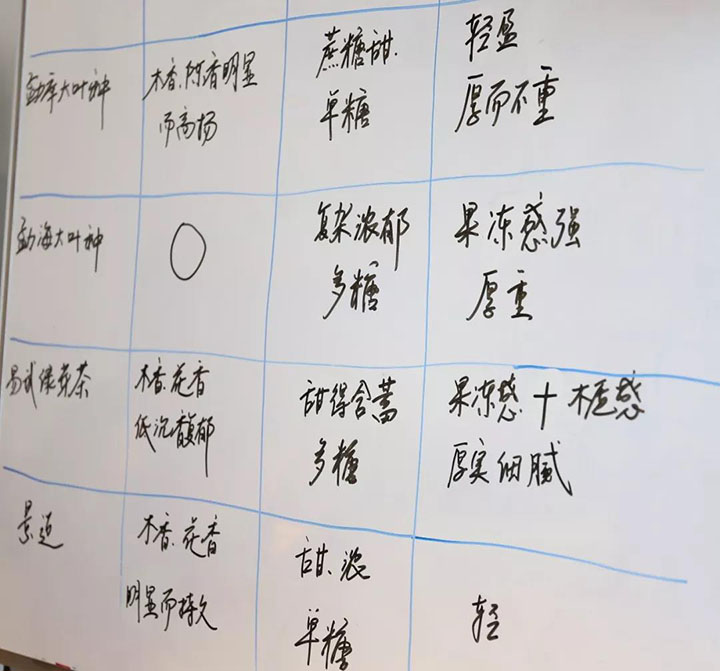 勐库大叶种
木香.陈香明显
而高扬
蔗糖甜.
单糖
轻盈
厚而不重
勐海大叶种
○
复杂浓郁
多糖
果冻感强
厚重
易武绿芽茶
木香.花香
低沉馥郁
甜得含蓄
多糖
果冻感+木质感
厚实细腻
景迈
木香.花香
明显而持久
甜.浓
单糖
轻